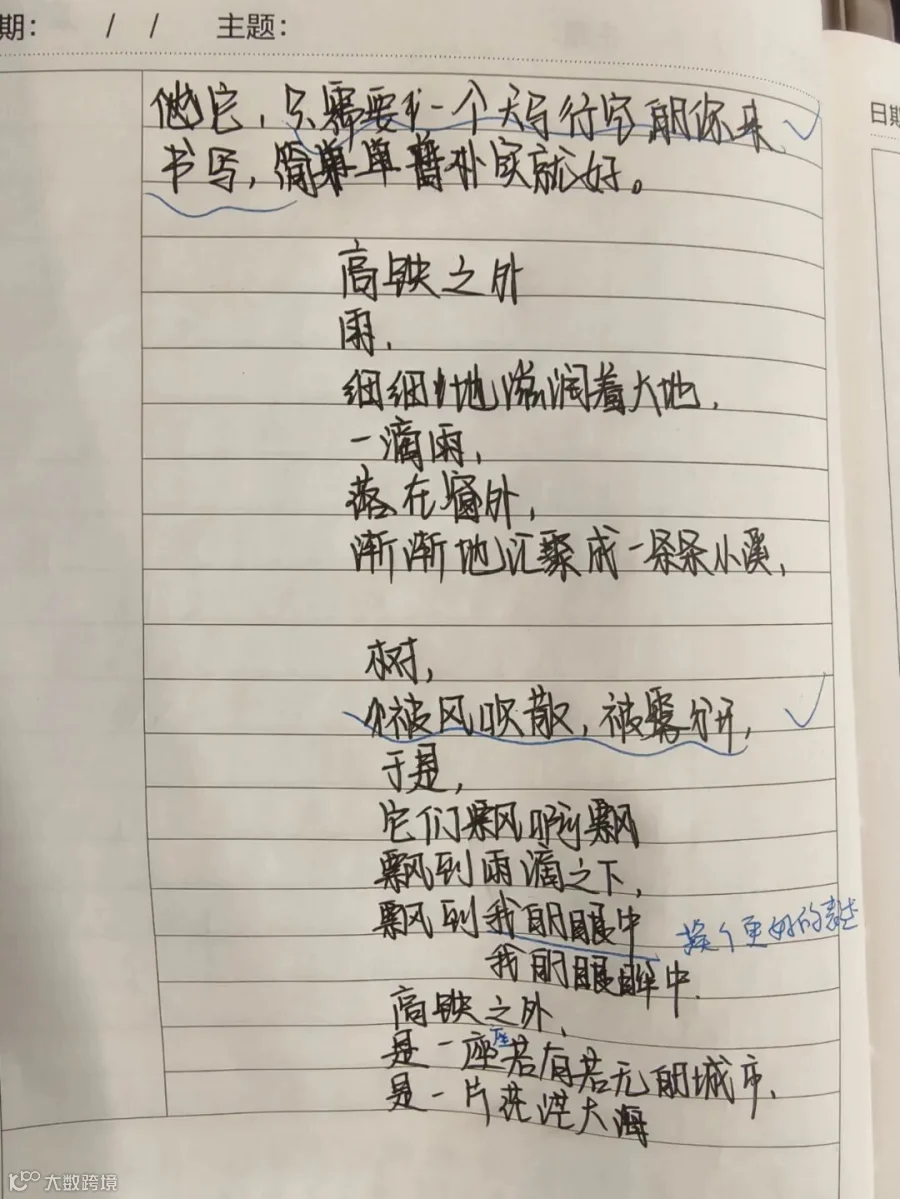 期： / / 主题：
日期
它，只需要一个来
书写，简单朴实就好。
高铁之外
雨，
细细地滋润着大地，
一滴雨，
落在窗外，
渐渐地汇聚成一条条小溪，
树，
被风吹散，被雾分开，
于是，
它们飘啊飘
飘到雨滴之下，
飘到我的眼中
换个更好的表述
我的眼眸中.
高铁之外，
座
是一座若有若无的城市，
是一片茫茫大海
大数跨境